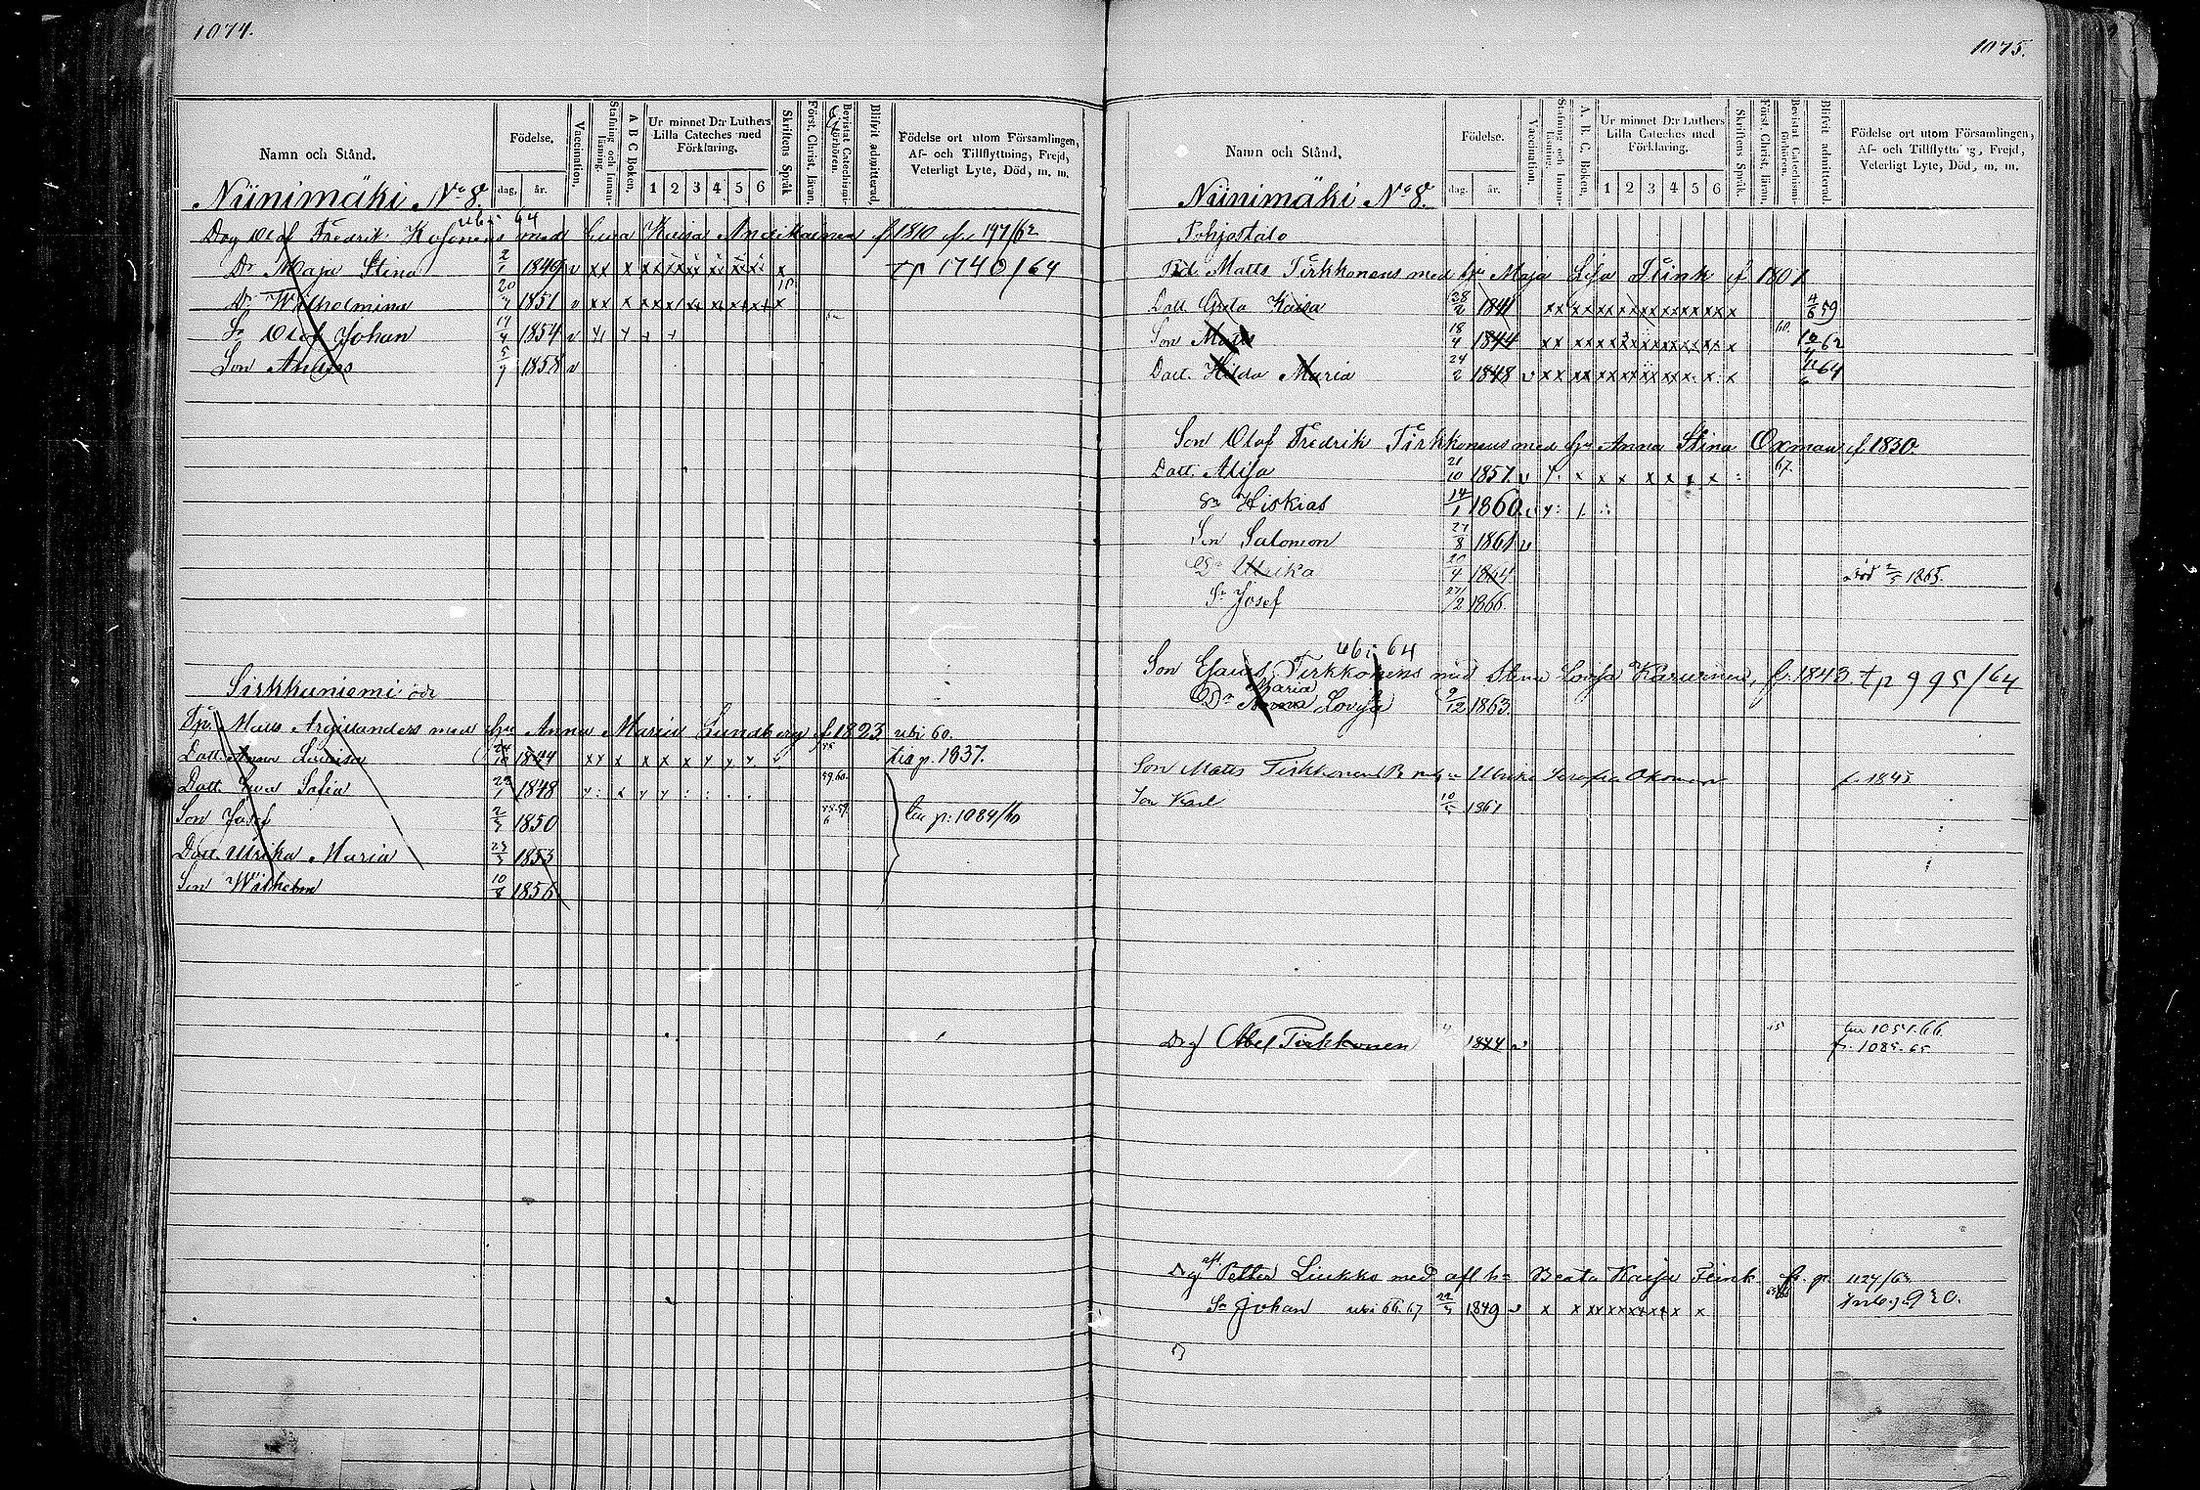 1074.
Namn och Stånd.
Födelse.
dag, år.
Vaccination.
Stafning och Innanläsning.
A B C Boken.
Ur minnet D:r Luthers Lilla Cateches med Förklaring.
1 2 3 4 5 6
Skriftens Språk
Först. Christ. läran.
Bevistat Catechismi-förhören.
Blifvit admitterad.
Födelse ort utom Församlingen, Af- och Tillflyttning, Frejd, Veterligt Lyte, Död, m. m.
Niinimäki No 8.
ubi 64
Drg Olof Fredrik Kosonens med Kaisa f 1810 fr. 197/62
Dr Maja Stina 2/1 1849 v xx x tp 1740/64
Dr Wilhelmina 20/7 1851 v xx x
Sn Olof Johan 17/4 1854 v
Son Anders 5/9 1858 v
Sirkkuniemi öde
Matts Argillanders med hu Anna Maria Lundberg f 1823 ubi 60.
Datt. Anna Lovisa 24/10 1844 p. 1837.
Datt. Eva Sofia 29/1 1848
Son Josef 2/3 1850 p. 1084/60
Datt. Ulrika Maria 23/3 1853
Son Wilhelm 10/8 1856
1075.
Namn och Stånd.
Födelse.
dag. år.
Vaccination.
Stafning och Innanläsning.
A. B. C. Boken.
Ur minnet D:r Luthers Lilla Cateches med Förklaring.
1 2 3 4 5 6
Skriftens Språk.
Först. Christ. läran.
Bevistat Catechismi-förhören.
Blifvit admitterad.
Födelse ort utom Församlingen, Af- och Tillflyttning, Frejd, Veterligt Lyte, Död, m. m.
Niinimäki No 8.
Pohjostalo
Matts Tirkkonens med hu Maja Lisa Flink f 1801
Datt Greta Kaisa 28/2 1841 4/6 59
Son Matts 18/4 1844 60. 62
Datt. Hilda Maria 24/2 1848 v 64
Son Olof Fredrik Tirkkonens med hu Anna Stina Oxman f 1830.
Datt. Alisa 21/10 1857. v 67.
Sn Hiskias 14/1 1860. v
Son Salomon 27/8 1861 v
Dr Ulrika 20/4 1864 död 2/5 1865.
Sn Josef 27/2 1866
ubi 64
Son Esaias Tirkkonens med Stina Lovisa Karvinen, f. 1843 tp 995/64
Dr Maria Lovisa 9/12 1863
Son Matts Tirkkonens Ulrika Serafia f. 1845
Son Karl 10/5 1867
Drg Abel Tirkkonen 1844 v 1051.66
fr. 1085.65
Drg Petter Liukko med afl h= Beata Kaisa Flink fr. p. 1127/63
Sn Johan ubi 66.67 22/3 1849 v x x 920.